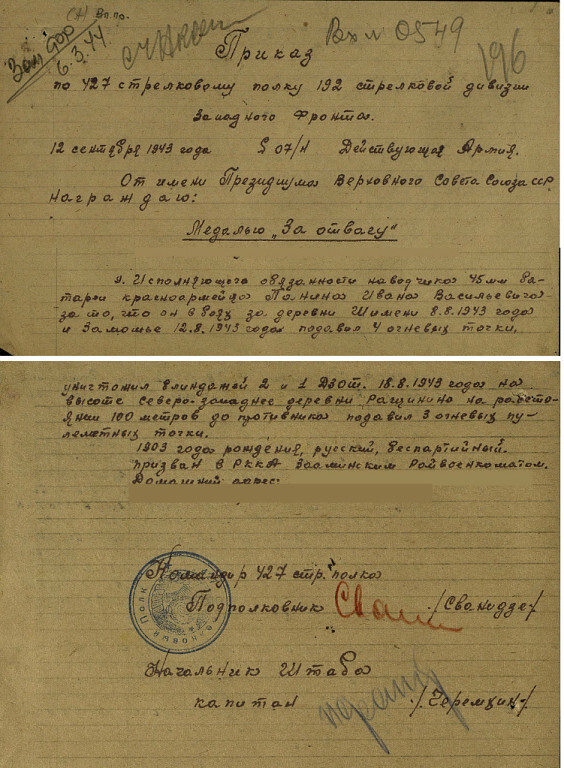 Вх № 0549
6.3.44
196
Приказ
по 427 стрелковому полку 192 стрелковой дивизии
Западного Фронта.
12 сентября 1943 года § 07/н Действующая Армия.
От имени Президиума Верховного Совета Союза ССР,
награждаю:
Медалью "За отвагу"
1. Исполняющего обязанности наводчика 45мм ба-
тареи красноармейца Панина Ивана Васильевича-
за то, что он в бою за деревни Шимени 8.8.1943 года
и Замошье 12.8.1943 года подавил 4 огневых точки,
уничтожил блиндажей 2 и 1 ДЗОТ. 18.8.1943 года на
высоте Северо-западнее деревни Ращинино на рассто-
янии 100 метров до противника подавил 3 огневых пу-
леметных точки.
1903 года рождения, русский, беспартийный.
призван в РККА Зааминским Райвоенкоматом.
Домашний адрес:
Командир 427 стр. полка
Подполковник /Сванидзе/
Начальник Штаба
капитан /Черемцин/